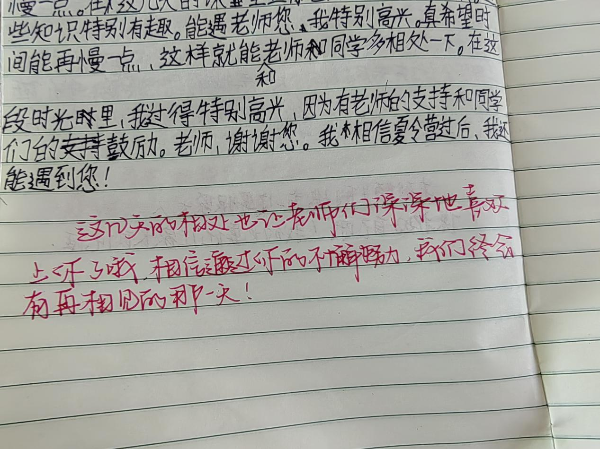 慢一点。在这几天的课
些知识特别有趣。能遇老师您、我特别高兴。真希望时
间能再慢一点、这样就能老师和同学多相处一下。在这
和
段时光里,我过得特别高兴,因为有老师的支持和同学
们的支持鼓励。老师,谢谢您。我相信夏令营过后,我还
能遇到您!
这几天的相处也让老师们深深地喜欢
上你了哦 相信通过你的不懈努力,我们终会
有再相见的那一天!